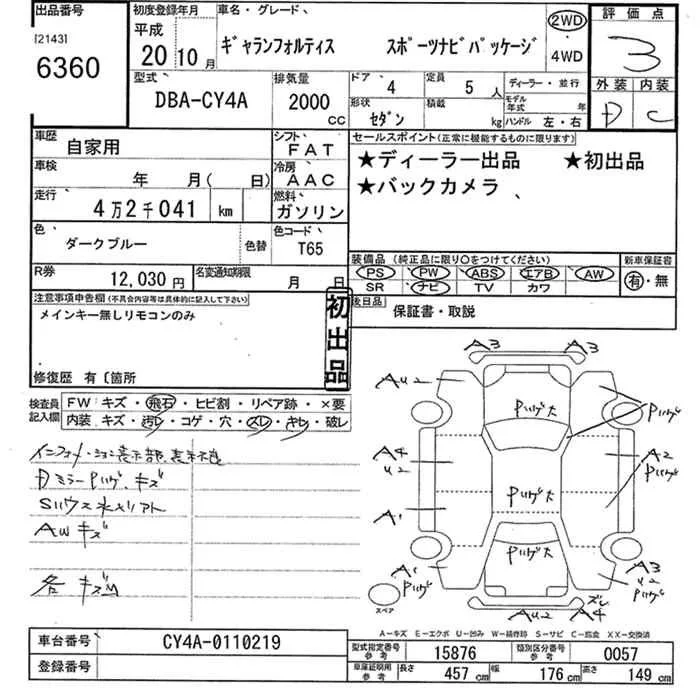 出品番号 初度登録年月 車名・グレード 評価点
[2143] 平成 2WD
6360 20年10月 ギャランフォルティス スポーツナビパッケージ ・ 4WD 3
型式 排気量 ドア 4 定員 5人 ディーラー・並行 外装 内装
DBA-CY4A 2000cc 形状 セダン 積載 kg モデル年式 年 D C
ハンドル 左・右
車歴 自家用 シフト FAT セールスポイント(正常に機能するものに限ります)
車検 年 月( 日) 冷房 AAC ★ディーラー出品 ★初出品
走行 4万2千041 km 燃料 ガソリン ★バックカメラ
色 ダークブルー 色替 色コード T65
装備品(純正品に限り○をつけてください) 新車保証書
R券 12,030円 名変通知期限 月 日 PS PW ABS エアB AW 有・無
SR ナビ TV カワ
注意事項申告欄(不具合内容等は具体的に記入して下さい) 初出品 後日品 保証書・取説
メインキー無しリモコンのみ
修復歴 有〔箇所
検査員記入欄 FW キズ・飛石・ヒビ割・リペア跡・×要
内装 キズ・汚レ・コゲ・穴・スレ・キレ・破レ
Dミラー Pハゲ キズ
AWキズ
A3 A3
AU2 Pハゲ大 Pハゲ
A4 U2 A2 Pハゲ
Pハゲ大
A1
Pハゲ大
A1 Pハゲ A3 U2 Pハゲ
スペア AU2 A4 ズレ
A−キズ E−エクボ U−凹み W−補修跡 S−サビ C−腐食 XX−交換済
車台番号 CY4A-0110219 型式指定番号 参考 15876 類別区分番号 参考 0057
登録番号 車庫証明用 参考 長さ 457 cm 幅 176 cm 高さ 149 cm